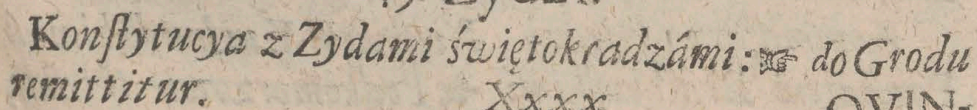 Konſtytucya z Zydami świętokradzámi: ☞ do Grodu
remittitur.
Xxxx